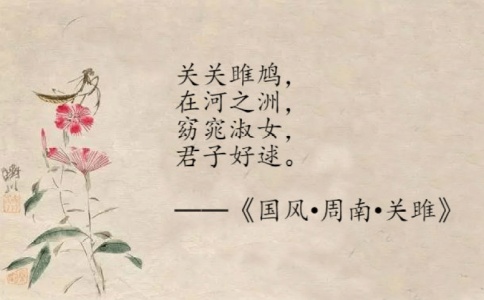 关关雎鸠，
在河之洲，
窈窕淑女，
君子好逑。
——《国风•周南•关雎》